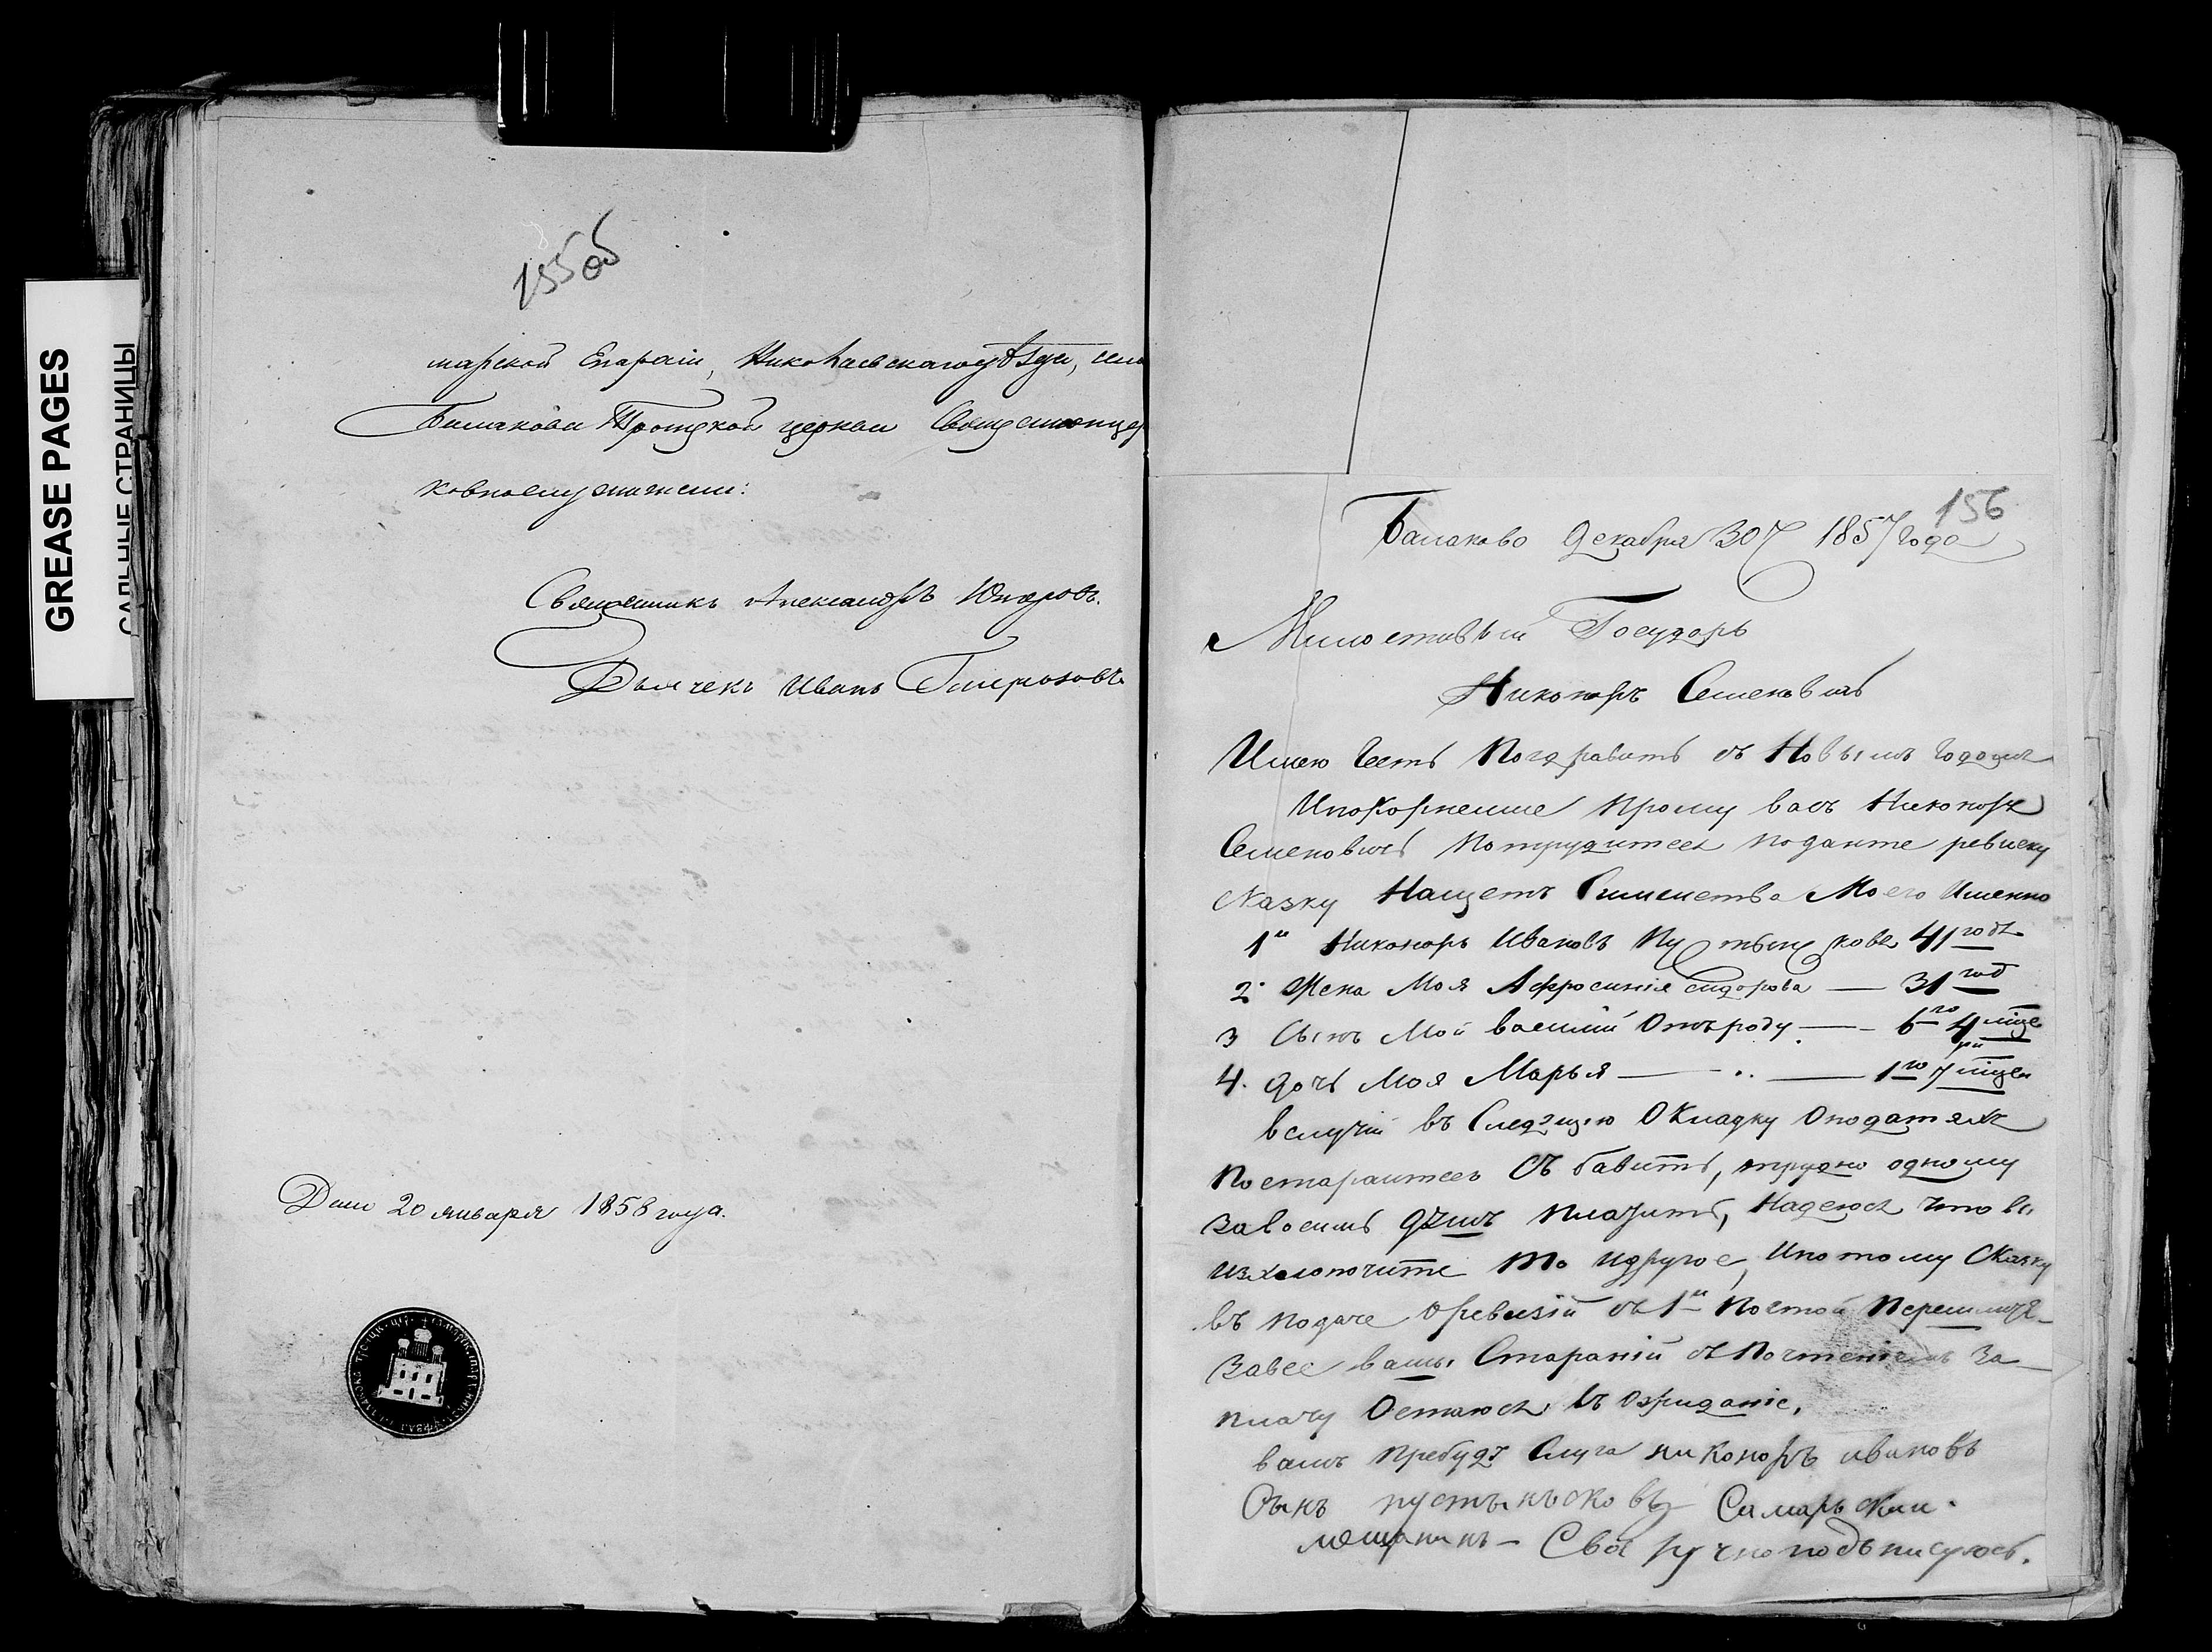 GREASE PAGES
САЛЬНЫЕ СТРАНИЦЫ
155об
марской Епархіи, Николаевскаго уѣзда, села
Балакова Троицкой церкви Священноцер
ковнослужители:
Священникъ Александръ
Дьячекъ Иванъ
Дано 20 января 1858 года.
156
Балаково Декабря 30 1857 года
Милостивый Государь
Никоноръ Семеновичь
Имею Честь Поздравить съ Новымъ Годомъ
Ипокорнеише Прошу васъ Никоноръ
Семеновичь Потрудитесь подайте ревиску
Сказку Нащетъ Симемства Моего Именно
1й Никоноръ Ивановъ 41 годъ
2. Жена Моя Афросинія Сидорова — 31 год
3 Сынъ Мой василий Отъроду — 6 го 4 мце
4. дочь Моя Марья — 1 го 7 мцев
вслучіи въ Окладку Оподатяхъ
Постараитесь Сбавить, трудно одному
Завосимь душъ Платить, Надеюсь что вы
изхлопочите то идругое, Ипотому Сказку
въ подаче Оревизіи съ 1й Почтой Перешлите
Завсе вашы Стараніи съ Почтеніемъ За
плачу Остаюсь въ Ожиданіе,
вашъ Пребуду Слуга никоноръ ивановъ
Сынъ пустынъсковъ Самарьскии
мещанинъ — Своиручноподъписуюсь.